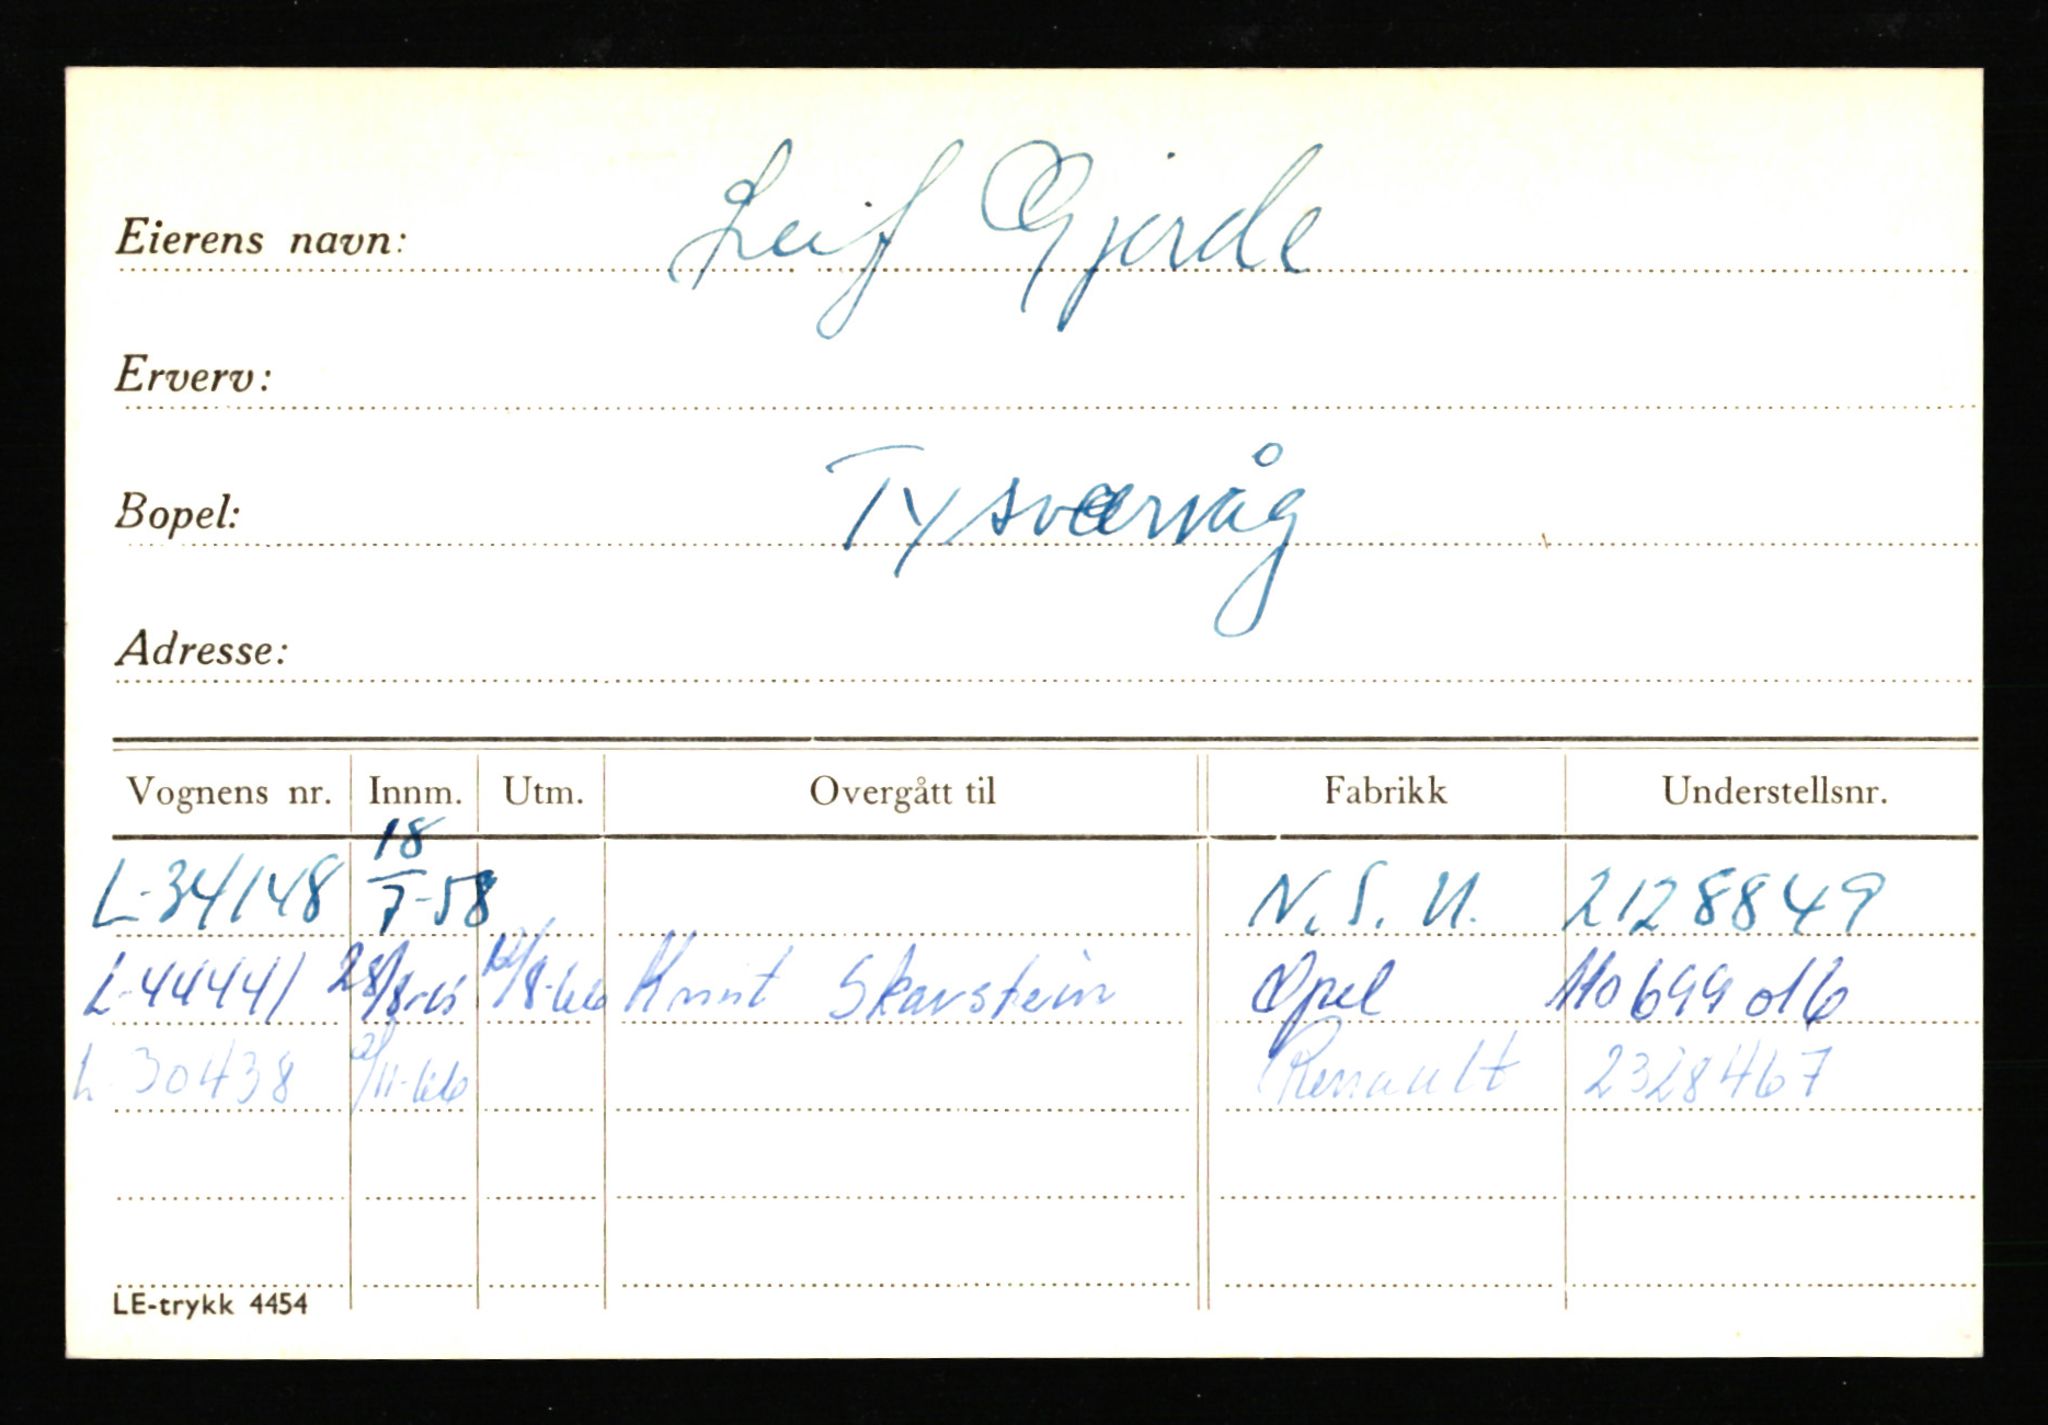 Eierens navn: Leif Gjerde
Erverv:
Bopel: Tysværvåg
Adresse:
Vognens nr. Innm. Utm. Overgått til Fabrikk Understellsnr.
L-34148 18/7-58 N.S.U. 2128849
L-44441 28/8-65 12/8-66 Knut Skarstein Opel 110699016
L-30438 2/11-66 Renault 2328467
LE-trykk 4454